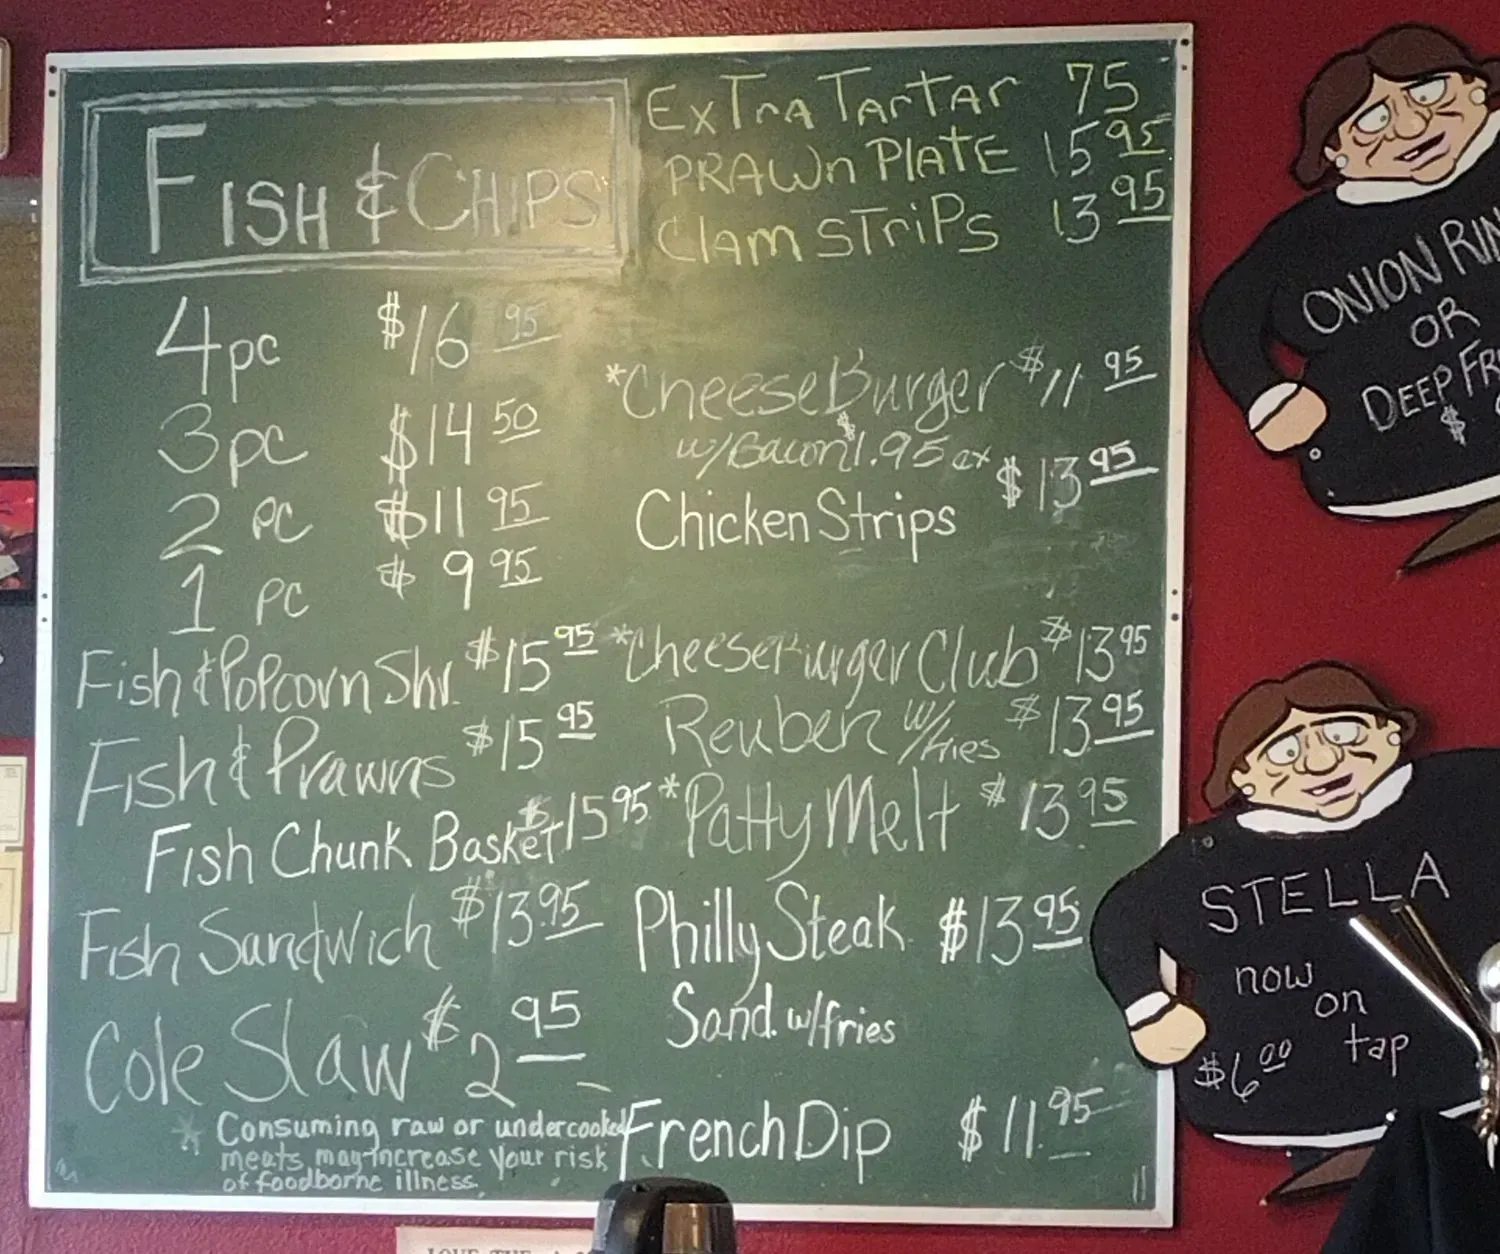 FISH & CHIPS
4 pc $16 95
3 pc $14 50
2 PC $11 95
1 PC $9 95
Fish & Popcorn Shr. $15 95
Fish & Prawns $15 95
Fish Chunk Basket $15 95
Fish Sandwich $13.95
Cole Slaw $2 95
* Consuming raw or undercooked
meats may increase your risk
of foodborne illness.
ExTrA TArTAr 75
PRAWn PLATE 15 95
Clam STriPs 13 95
*CheeseBurger $11 95
w/Bacon $1.95 ex
Chicken Strips $13 95
*CheeseBurger Club $13 95
Reuben w/fries $13 95
*Patty Melt $13 95
Philly Steak $13 95
Sand. w/fries
French Dip $11 95
ONION RIN
OR
DEEP FR
$
STELLA
now
on
tap
$6 00